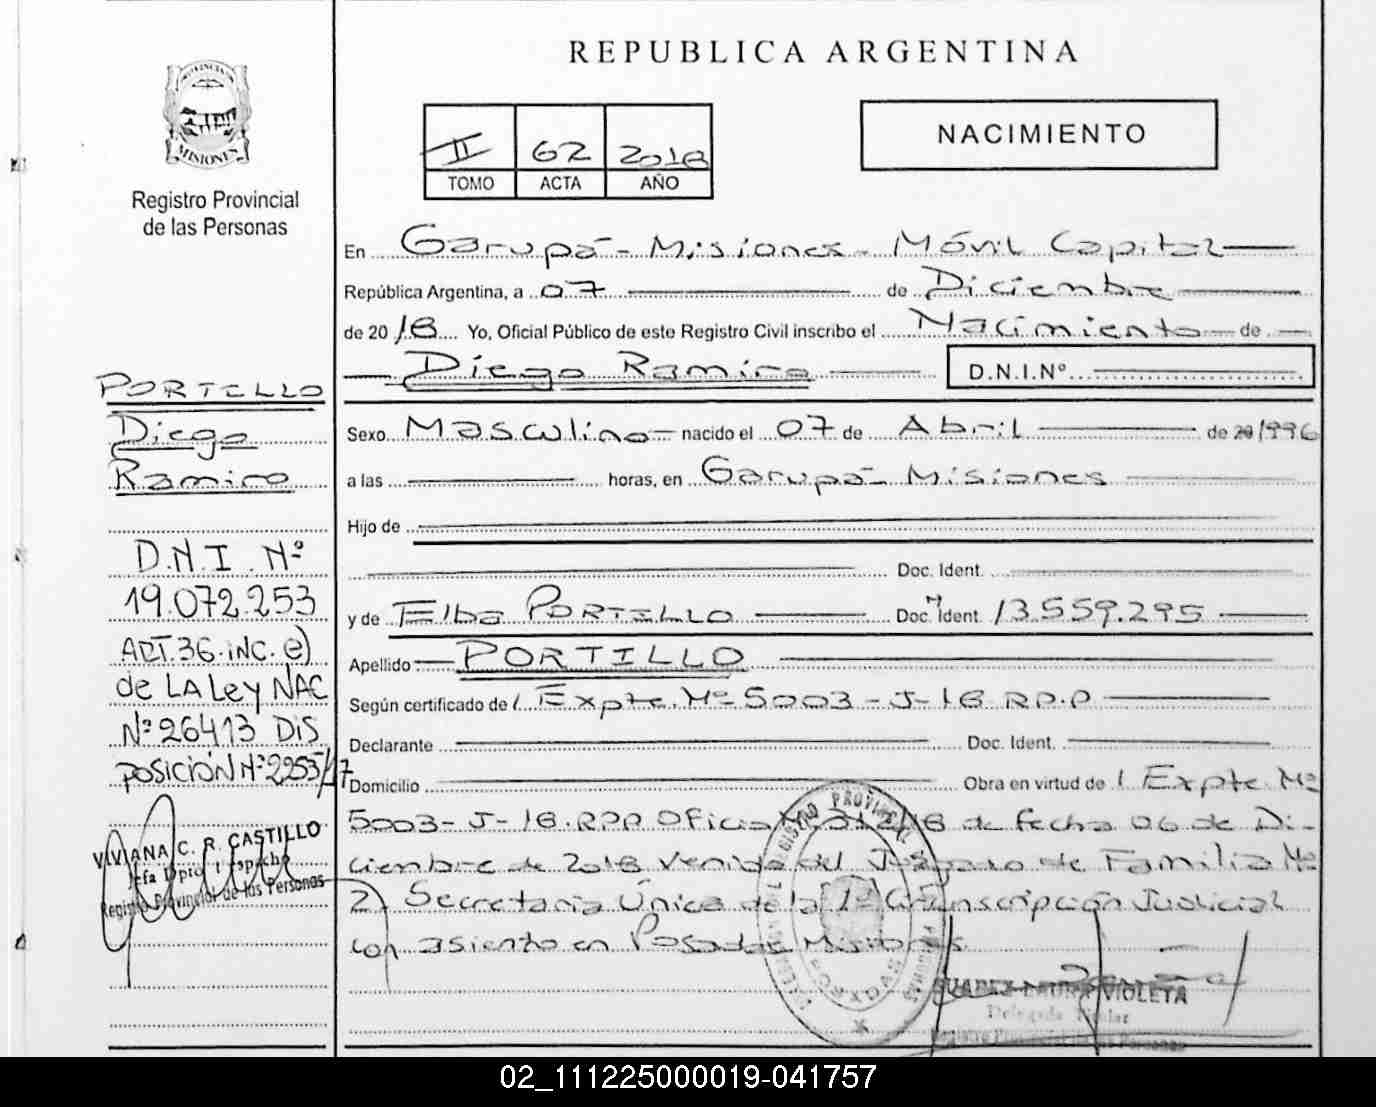 REPUBLICA ARGENTINA
PROVINCIA DE
MISIONES
Registro Provincial
de las Personas
II 62 2018
TOMO ACTA AÑO
NACIMIENTO
En Garupá - Misiones - Móvil Capital
República Argentina, a 07 de Diciembre
de 2018 Yo, Oficial Público de este Registro Civil inscribo el Nacimiento de
Diego Ramiro D.N.I.Nº
Sexo Masculino nacido el 07 de Abril de 20 1996
a las horas, en Garupá - Misiones
Hijo de
Doc. Ident.
y de Elba PORTILLO Doc. Ident. M 13.559.295
Apellido PORTILLO
Según certificado de / Expte. Nº 5003-J-18 R.P.P
Declarante Doc. Ident.
Domicilio Obra en virtud de / Expte. Nº
5003-J-18.RPP Oficio de fecha 06 de Di-
ciembre de 2018 venido del Juzgado de Familia Nº
2, Secretaria Única de la 1º Circunscripción Judicial
con asiento en Posadas Misiones.
SUAREZ LAURA VIOLETA
Delegada Titular
Registro Provincial de las Personas
PORTILLO
Diego
Ramiro
D.N.I. Nº
19.072.253
ART.36.iNC.e)
de LA Ley NAC
Nº 26413 DiS
POSICIÓN Nº 2253/17
VIVIANA C. R. CASTILLO
Jefa Dpto Despacho
Registro Provincial de las Personas
02_111225000019-041757